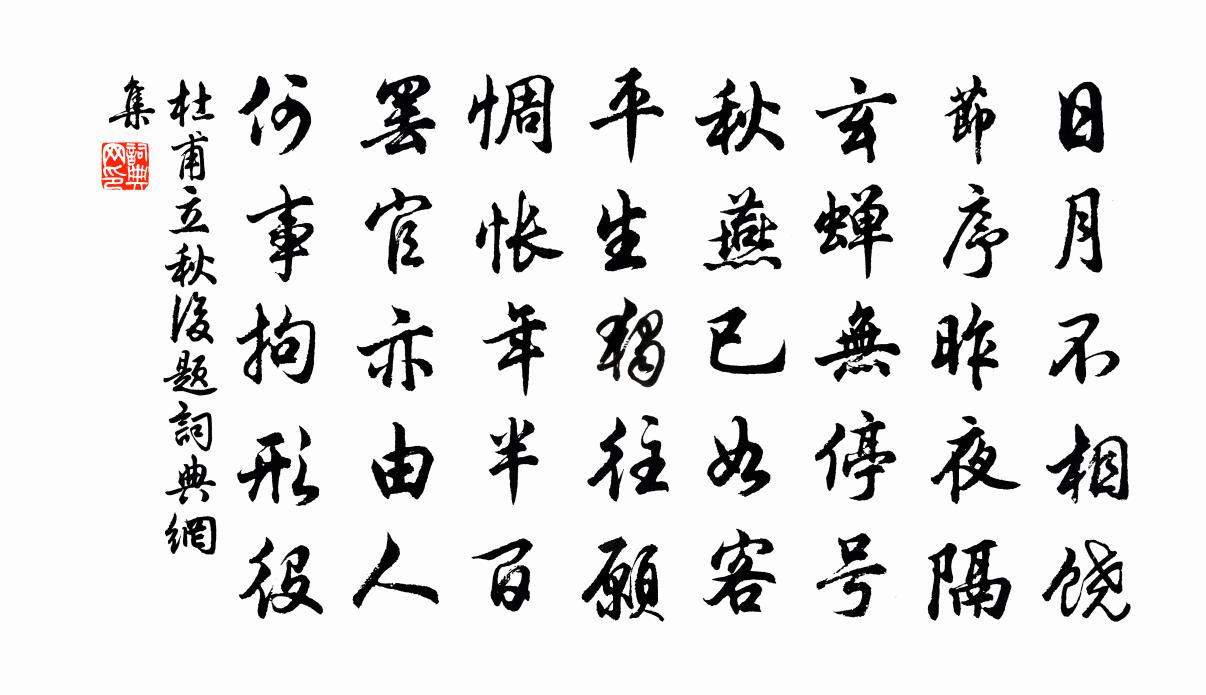 日月不相饶
節序昨夜隔
玄蝉無停号
秋燕已如客
平生獨往願
惆怅年半百
罢官亦由人
何事拘形役
杜甫立秋後题詞典網
集
詞典
网印